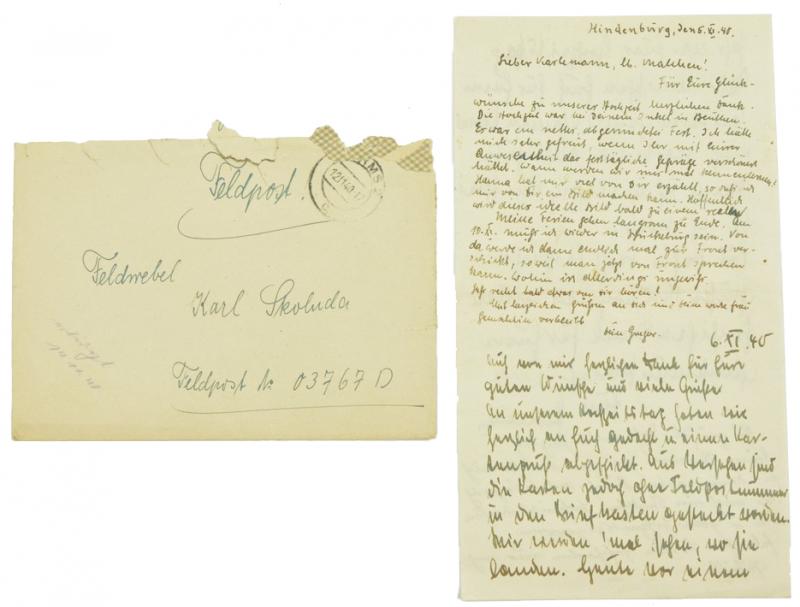 Feldpost.
12.11.40.-17
Feldwebel
Karl Skoluda
Feldpost № 03767 D
Hindenburg, den 5. XI. 40.
Lieber Karlemann, lb. Malchen!
Für Eure Glück-
wünsche zu unserer Hochzeit herzlichen Dank.
Die Hochzeit war bei Onkel in Beuthen.
Es war ein nettes, abgerundetes Fest. Ich hätte
mich sehr gefreut, wenn Ihr mit Eurer
Anwesenheit das festtägliche Gepräge verschönert
hättet. Wann werden wir uns mal kennenlernen?
Hanna hat mir viel von Dir erzählt, so daß ich
mir von Dir ein Bild machen kann. Hoffentlich
wird dieses ideelle Bild bald zu einem reellen
Meine Ferien gehen langsam zu Ende. Am
10. XI. muß ich wieder in sein. Von
da werde ich dann endlich mal zur Front ver-
schickt, soweit man jetzt von Front sprechen
kann. Wohin ist allerdings ungewiß.
recht bald etwas von Dir hören!
Mit herzlichen Grüßen an Dich und Deine werte Frau
Gemahlin verbleibt
Dein Gregor.
6. XI. 40
Auch von mir herzlichen Dank für Eure
guten Wünsche und viele Grüße
An unserem Hochzeitstag haben wir
herzlich an Euch gedacht u. einen Kar-
tengruß abgeschickt. Aus Versehen sind
die Karten jedoch ohne Feldpostnummer
in den Briefkasten gesteckt worden.
Wir werden 'mal sehen, wo sie
landen. Heute vor einem